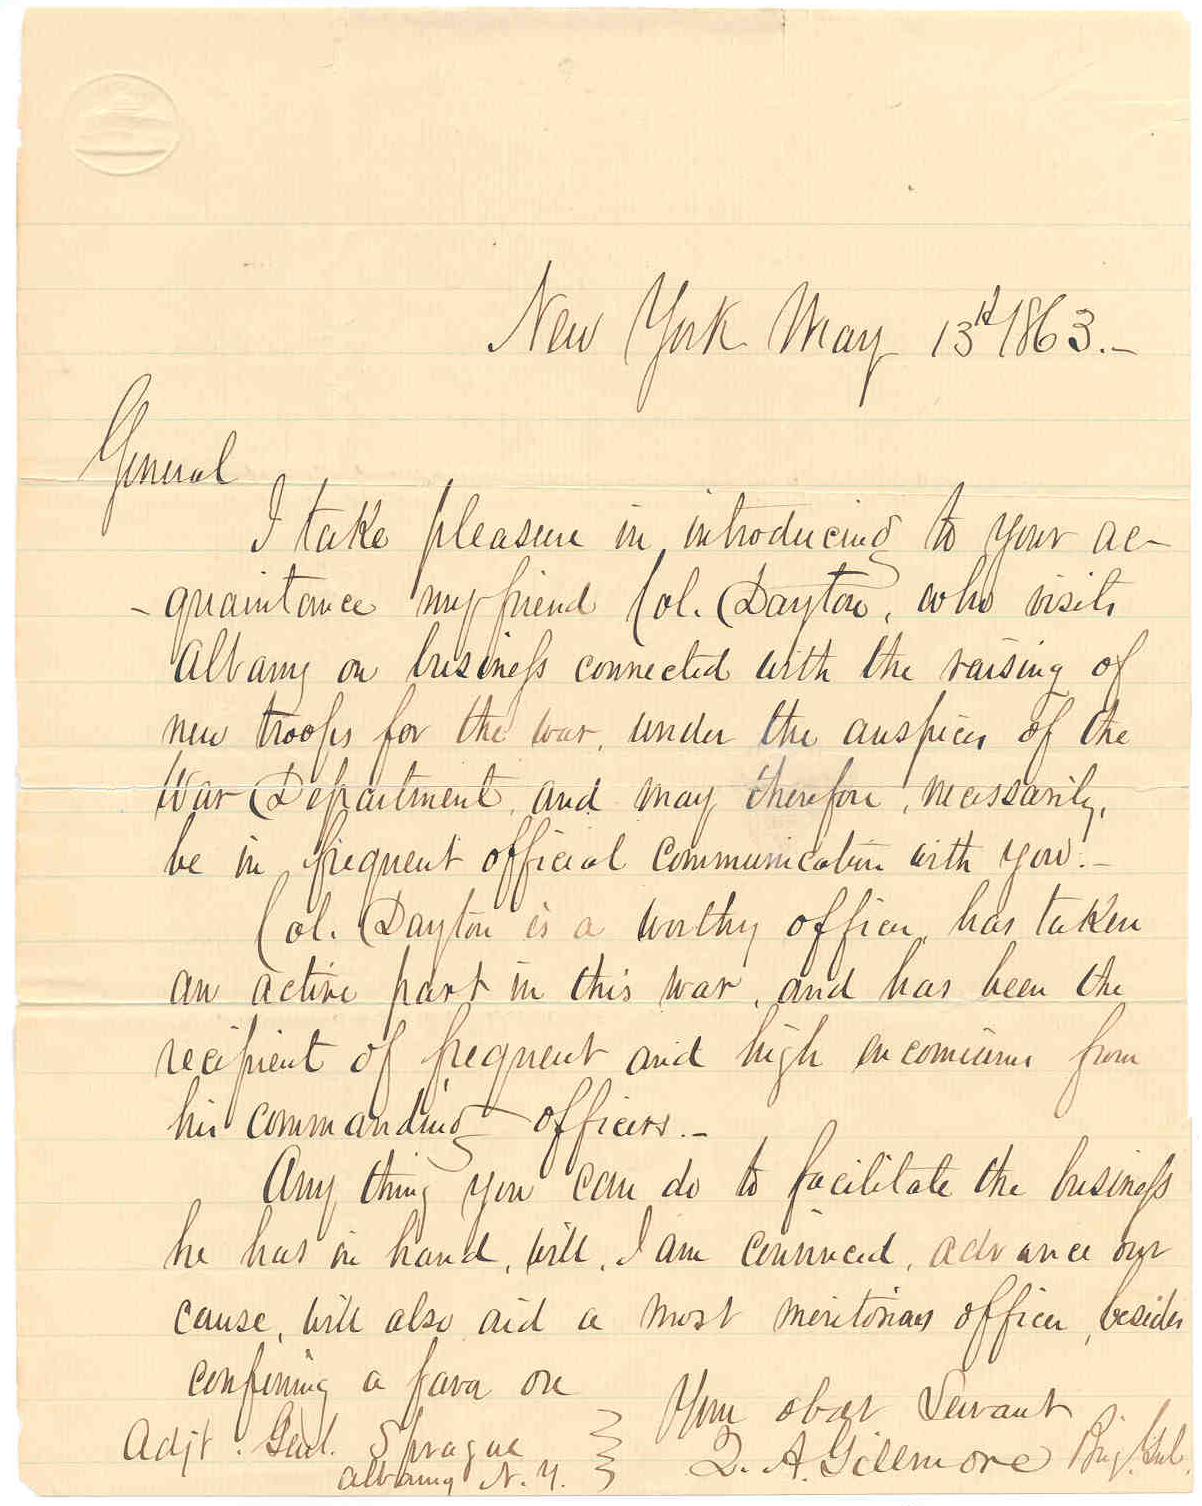 New York May 13th 1863.-
General
I take pleasure in introducing to your ac-
-quaintance my friend Col. Dayton, who visits
Albany on business connected with the raising of
new troops for the war, under the auspices of the
War Department, and may therefore, necessarily,
be in frequent official communication with you.-
Col. Dayton is a worthy officer, has taken
an active part in this war, and has been the
recipient of frequent and high encomiums from
his commanding officers.-
Any thing you can do to facilitate the business
he has in hand, will, I am convinced, advance our
cause, will also aid a most meritorious officer, besides
conferring a favor on
Your obdt Servant
Q. A. Gillmore Brig. Genl.
Adjt. Genl. Sprague
Albany N. Y.